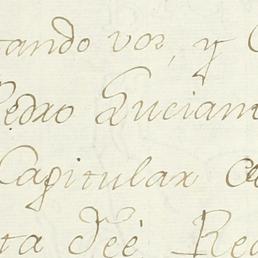 tando vos, y
Pedro Luciano
Capitular
ta de